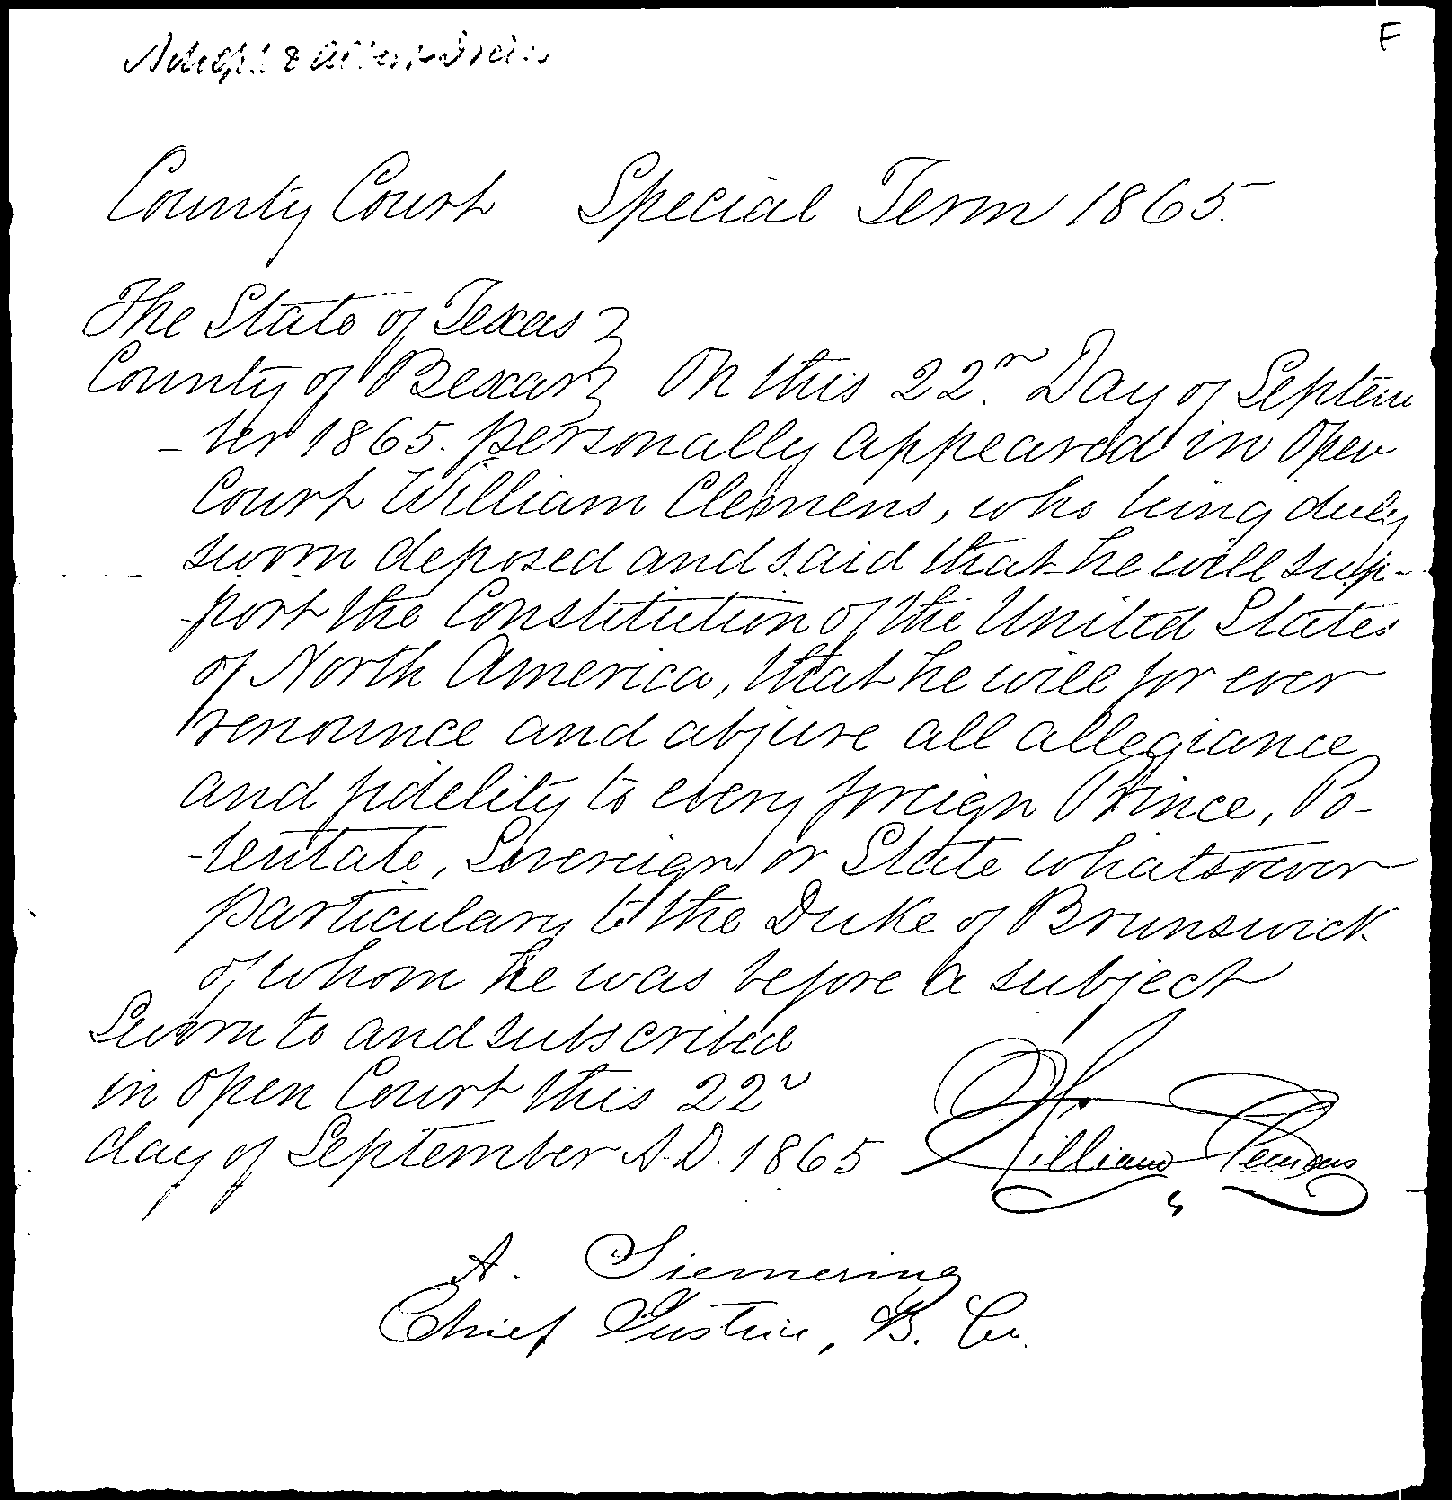 F
County Court Special Term 1865.
The State of Texas }
County of Bexar } On this 22n. Day of Septem
-ber 1865. personally appeared in open
Court William Clemens, who being duly
sworn deposed and said that he will sup-
-port the Constitution of the United States
of North America, that he will for ever
renounce and abjure all allegiance
and fidelity to every foreign Prince, Po-
-tentate, Sovereign or State whatsoever
particulary to the Duke of Brunswick
of whom he was before a subject
Sworn to and subscribed
in open Court this 22d
day of September A.D. 1865
William Clemens
A. Siemering
Chief Justice, B. Co.